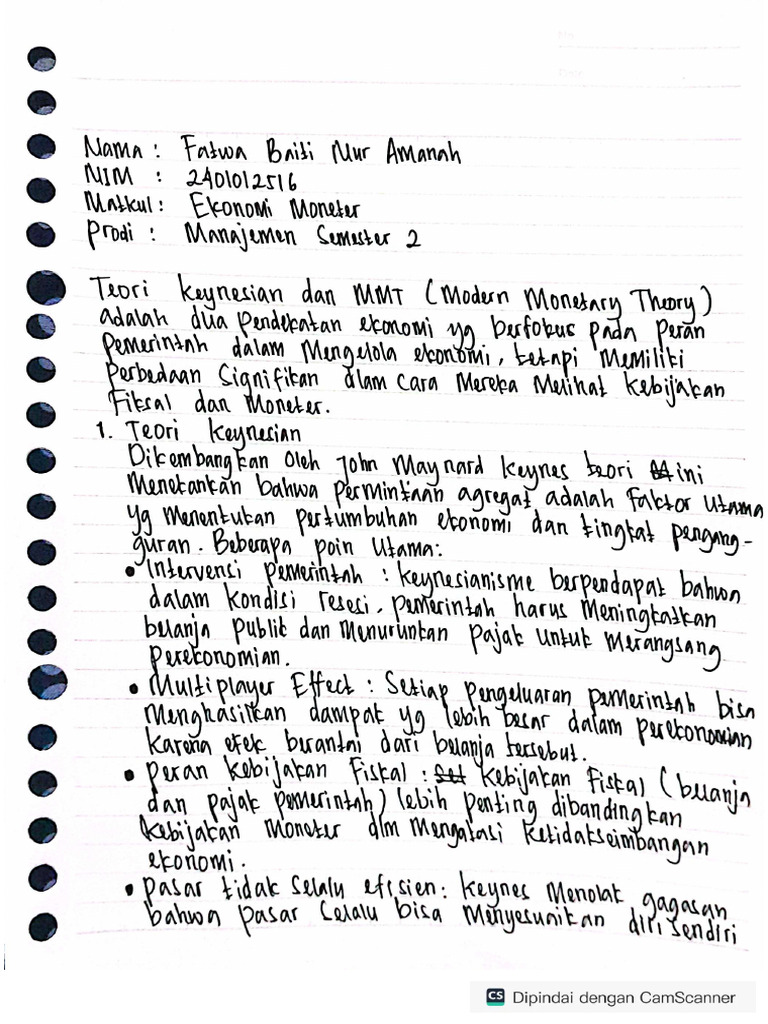 Nama : Fatwa Baiti Nur Amanah
NIM : 2401012516
Matkul : Ekonomi Moneter
Prodi : Manajemen Semester 2
Teori keynesian dan MMT (Modern Monetary Theory)
adalah dua pendekatan ekonomi yg berfokus pada peran
pemerintah dalam Mengelola ekonomi, tetapi Memiliki
perbedaan Signifikan dlam cara Mereka Melihat kebijakan
Fiksal dan Moneter.
1. Teori keynesian
Dikembangkan oleh John Maynard keynes teori ini
Menekankan bahwa permintaan agregat adalah faktor utama
yg Menentukan pertumbuhan ekonomi dan tingkat pengang-
guran. Beberapa poin utama:
• Intervensi pemerintah : keynesianisme berpendapat bahwa
dalam kondisi resesi, pemerintah harus Meningkatkan
belanja publik dan Menurunkan pajak untuk Merangsang
perekonomian.
• Multiplayer Effect : Setiap pengeluaran pemerintah bisa
Menghasilkan dampak yg lebih besar dalam perekonomian
karena efek berantai dari belanja tersebut.
• peran kebijakan Fiskal : kebijakan Fiskal (belanja
dan pajak pemerintah) lebih penting dibandingkan
kebijakan Moneter dlm Mengatasi ketidakseimbangan
ekonomi.
• pasar tidak selalu efisien : keynes Menolak gagasan
bahwa pasar selalu bisa Menyesuaikan diri sendiri
CS Dipindai dengan CamScanner